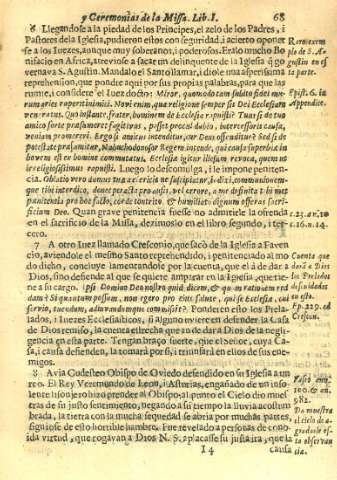 y Ceremonias de la Missa. Lib. I. 68
6 Llegandose a la piedad de los Principes, el zelo de los Padres, i
Pastores de la Iglesia, pudieron ellos con seguridad, i acierto oponer
se a los Iuezes, aunque muy soberanos, i poderosos. Eralo mucho Bo
nifacio en Africa, atreviose a sacar un delinquente de la Iglesia q̃ go
vernava S. Agustin. Mandalo el Santo llamar, i diole una asperissima
reprehension, que pondre aqui por sus propias palabras, para que las
rumie, i considere el Iuez docto;
rum aries rapere tinimici. Novi enim, qua religione semper sis Dei Ecclesiam
ven ratus. Qui instante, frater, hominem de Ecclesia rapuisti?
amico forte præsumeret fugitivus, posset procul dubio, intercessoris causa,
veniam promereri. Ergo si amicus intenditur, cur Deus offenditur? Sed si de
potestate præsumitur, Nabuchodonosor Regem intende, qui causa superbiæ in
bovem est ex homine commutatus. Ecclesia igitur illesum revoca, quem
irreligiosissimus rapuisti. Luego lo descomulga, i le impone peniten-
cia.
que tibi interdico, donec
nitentia pro hoc facto, corde contrito & humiliato dignum offeras sacri-
ficium Deo. Quan grave penitencia fuesse no admitirle la ofrenda
en el sacrificio de la Missa, dezimoslo en el libro segundo, i ter-
cero.
7 A otro Iuez llamado Cresconio, que sacò de la Iglesia a Faven
cio, aviendole el mesmo Santo reprehendido, i penitenciado al mo
do dicho, concluye lamentandose por la cuenta, que el à de dar à
Dios, sino defiende al que se quiere amparar en la Iglesia, que tie-
ne a su cargo. Ipsi Domino Deo nostro quid dicem, & quam rationem red
dam? Si quantum possum, non egero pro eius salute, qui se Ecclesiæ, cui
servio, tuendum, adiuvandumque commisit? Ponderen esto los Prela-
dos, i Iuezes Ecclesiasticos, si alguno uviere en defender la Casa
de Dios remisso, la cuenta estrecha que à de dar à Dios de la negli-
gencia en esta parte. Tengan braço fuerte, que el Señor, cuya Ca-
sa, i causa defienden, la tomarà por si, i triunfarà en ellos de sus ene-
migos.
8 Avia Gudesteo Obispo de Oviedo defendido en su Iglesia a un
reo. El Rey Veremundo de Leon, i Asturias, engañado de un inso-
lente lisonjero hizo prender al Obispo: al punto el Cielo dio mues
tras de su justo sentimiento, negando a su tiempo la lluvia acostum
brada, la tierra con la mucha sequedad se abria por muchas partes,
siguiose de esto horrible hambre. Fue revelado a personas de cono-
cida virtud, que rogavan a Dios N. S. aplacasse su justa ira, que la
I 4 causa
Raro exem-
plo de S. Au
gustin en es
ta parte.
Epist. 6. in
Appendice.
c.16. n.14.
Cuenta que
darà à Dios
los Prelados
descuidados
en esto.
Ep. 229. ad
Crescon.
Do muestra
el cielo de a-